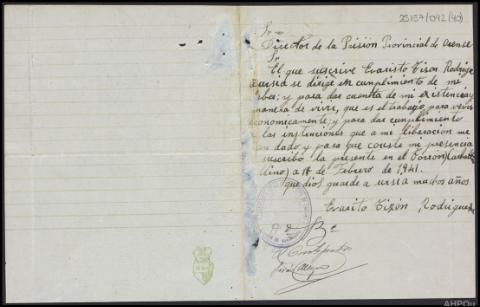 25157/092 (40)
Sr
Director de la Prisión Provincial de Orense
Sr
El que suscrive Evaristo Tizon Rodrigz
a ursia se dirige en cumplimiento de mi
y para dar cuenta de mi existencia y
manera de vivir, que es el trabajo para vivir
economicamente; y para dar cumplimiento
las instruciones que a mi liberacion me
an dado y para que conste mi presencia
suscribo la presente en el
lino) a 18 de Febrero de 1941.
que dios guarde a ursia muchos años
Evaristo Tizón Rodriguez
AHPOu